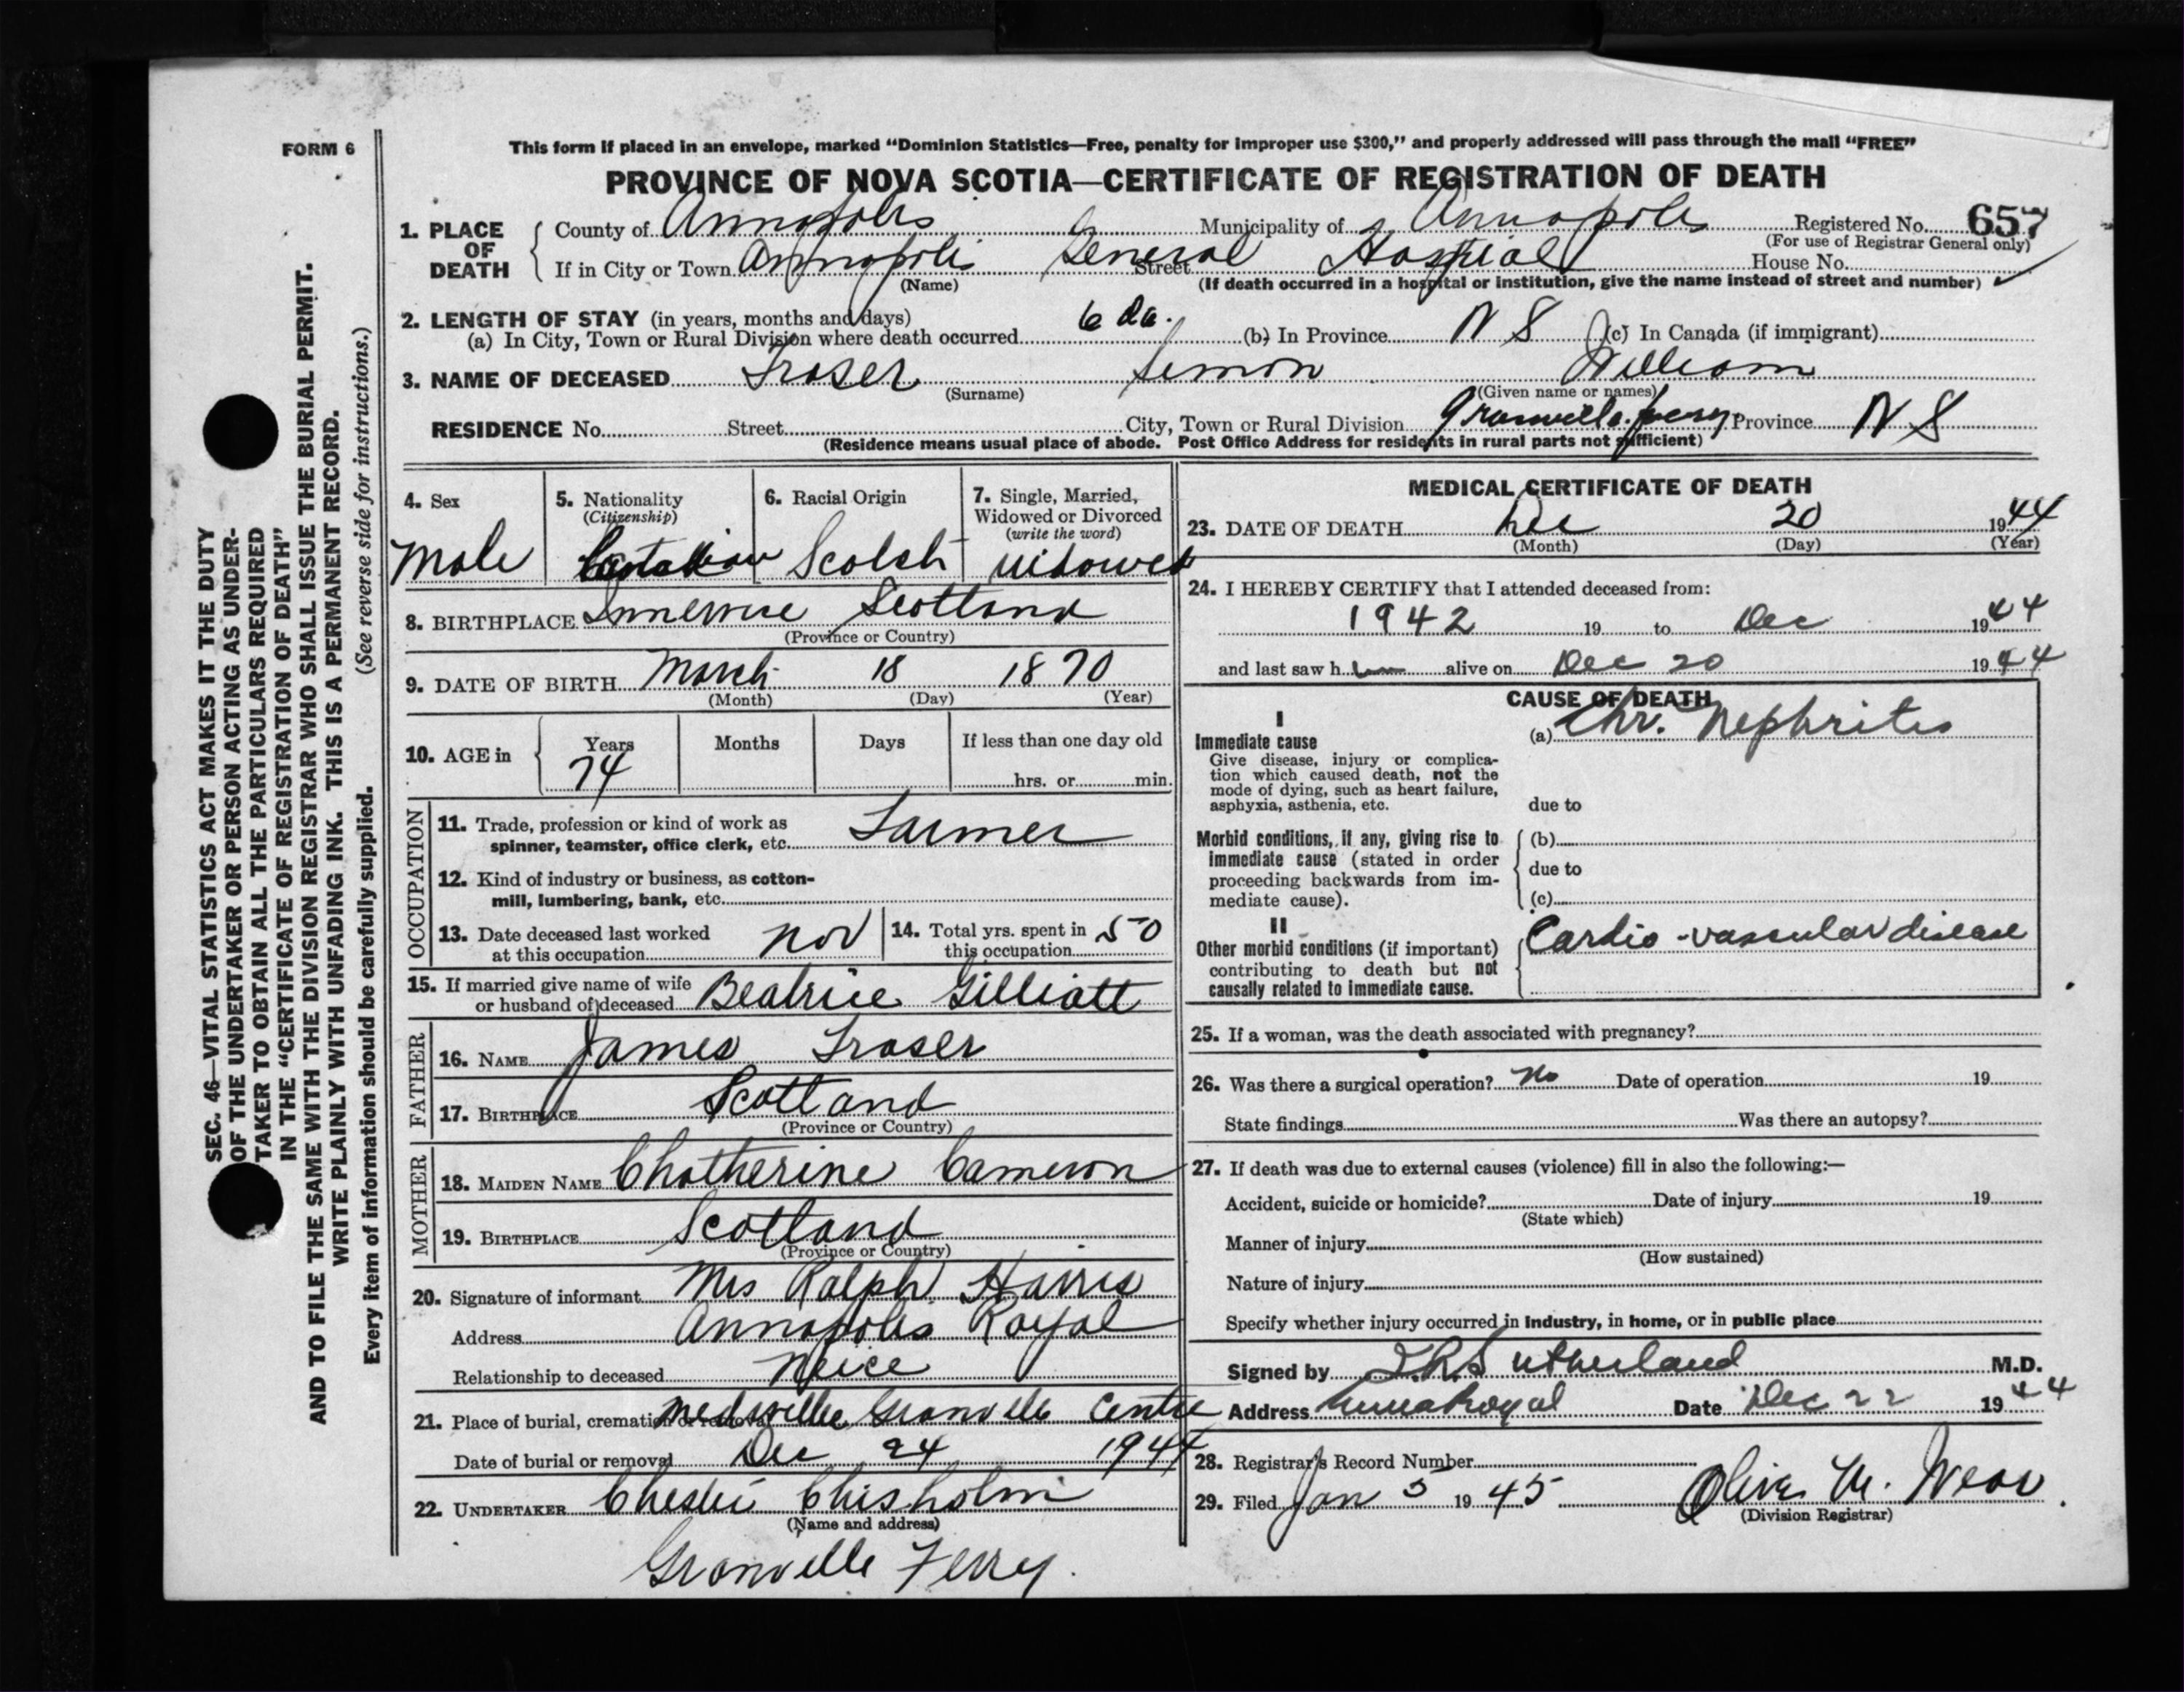 FORM 6
This form if placed in an envelope, marked “Dominion Statistics—Free, penalty for improper use $300,” and properly addressed will pass through the mail “FREE”
PROVINCE OF NOVA SCOTIA—CERTIFICATE OF REGISTRATION OF DEATH
1. PLACE OF DEATH County of Annapolis Municipality of Annapolis Registered No. 657
(For use of Registrar General only)
If in City or Town Annapolis General Hospital Street House No.
(Name) (If death occurred in a hospital or institution, give the name instead of street and number)
2. LENGTH OF STAY (in years, months and days)
(a) In City, Town or Rural Division where death occurred 6 da. (b) In Province N S (c) In Canada (if immigrant)
3. NAME OF DECEASED Fraser Simon William
(Surname) (Given name or names)
RESIDENCE No. Street City, Town or Rural Division Granville Ferry Province N S
(Residence means usual place of abode. Post Office Address for residents in rural parts not sufficient)
4. Sex Male
5. Nationality (Citizenship) Canadian
6. Racial Origin Scotch
7. Single, Married, Widowed or Divorced (write the word) Widowed
8. BIRTHPLACE Scotland
(Province or Country)
9. DATE OF BIRTH March 18 1870
(Month) (Day) (Year)
10. AGE in Years Months Days If less than one day old
74 hrs. or min.
OCCUPATION
11. Trade, profession or kind of work as
spinner, teamster, office clerk, etc. Farmer
12. Kind of industry or business, as cotton-
mill, lumbering, bank, etc.
13. Date deceased last worked
at this occupation Nov
14. Total yrs. spent in
this occupation 50
15. If married give name of wife
or husband of deceased Beatrice Gilliatt
FATHER
16. NAME James Fraser
17. BIRTHPLACE Scotland
(Province or Country)
MOTHER
18. MAIDEN NAME Chatherine Cameron
19. BIRTHPLACE Scotland
(Province or Country)
20. Signature of informant Mrs Ralph Harris
Address Annapolis Royal
Relationship to deceased Neice
21. Place of burial, cremation or removal Granville Centre
Date of burial or removal Dec 24 1944
22. UNDERTAKER Chisholm
(Name and address)
Granville Ferry.
MEDICAL CERTIFICATE OF DEATH
23. DATE OF DEATH Dec 20 1944
(Month) (Day) (Year)
24. I HEREBY CERTIFY that I attended deceased from:
1942 19 to Dec 1944
and last saw h im alive on Dec 20 1944
CAUSE OF DEATH
I
Immediate cause (a) Chr. Nephritis
Give disease, injury or complica-
tion which caused death, not the
mode of dying, such as heart failure,
asphyxia, asthenia, etc. due to
Morbid conditions, if any, giving rise to (b)
immediate cause (stated in order
proceeding backwards from im- due to
mediate cause). (c)
II
Other morbid conditions (if important) Cardio-vascular disease
contributing to death but not
causally related to immediate cause.
25. If a woman, was the death associated with pregnancy?
26. Was there a surgical operation? No Date of operation 19
State findings Was there an autopsy?
27. If death was due to external causes (violence) fill in also the following:—
Accident, suicide or homicide? Date of injury 19
(State which)
Manner of injury
(How sustained)
Nature of injury
Specify whether injury occurred in industry, in home, or in public place
Signed by Sutherland M.D.
Address Anna Royal Date Dec 22 1944
28. Registrar's Record Number
29. Filed Jan 5 1945 M.
(Division Registrar)
SEC. 46—VITAL STATISTICS ACT MAKES IT THE DUTY
OF THE UNDERTAKER OR PERSON ACTING AS UNDER-
TAKER TO OBTAIN ALL THE PARTICULARS REQUIRED
IN THE “CERTIFICATE OF REGISTRATION OF DEATH”
AND TO FILE THE SAME WITH THE DIVISION REGISTRAR WHO SHALL ISSUE THE BURIAL PERMIT.
WRITE PLAINLY WITH UNFADING INK. THIS IS A PERMANENT RECORD.
Every item of information should be carefully supplied. (See reverse side for instructions.)